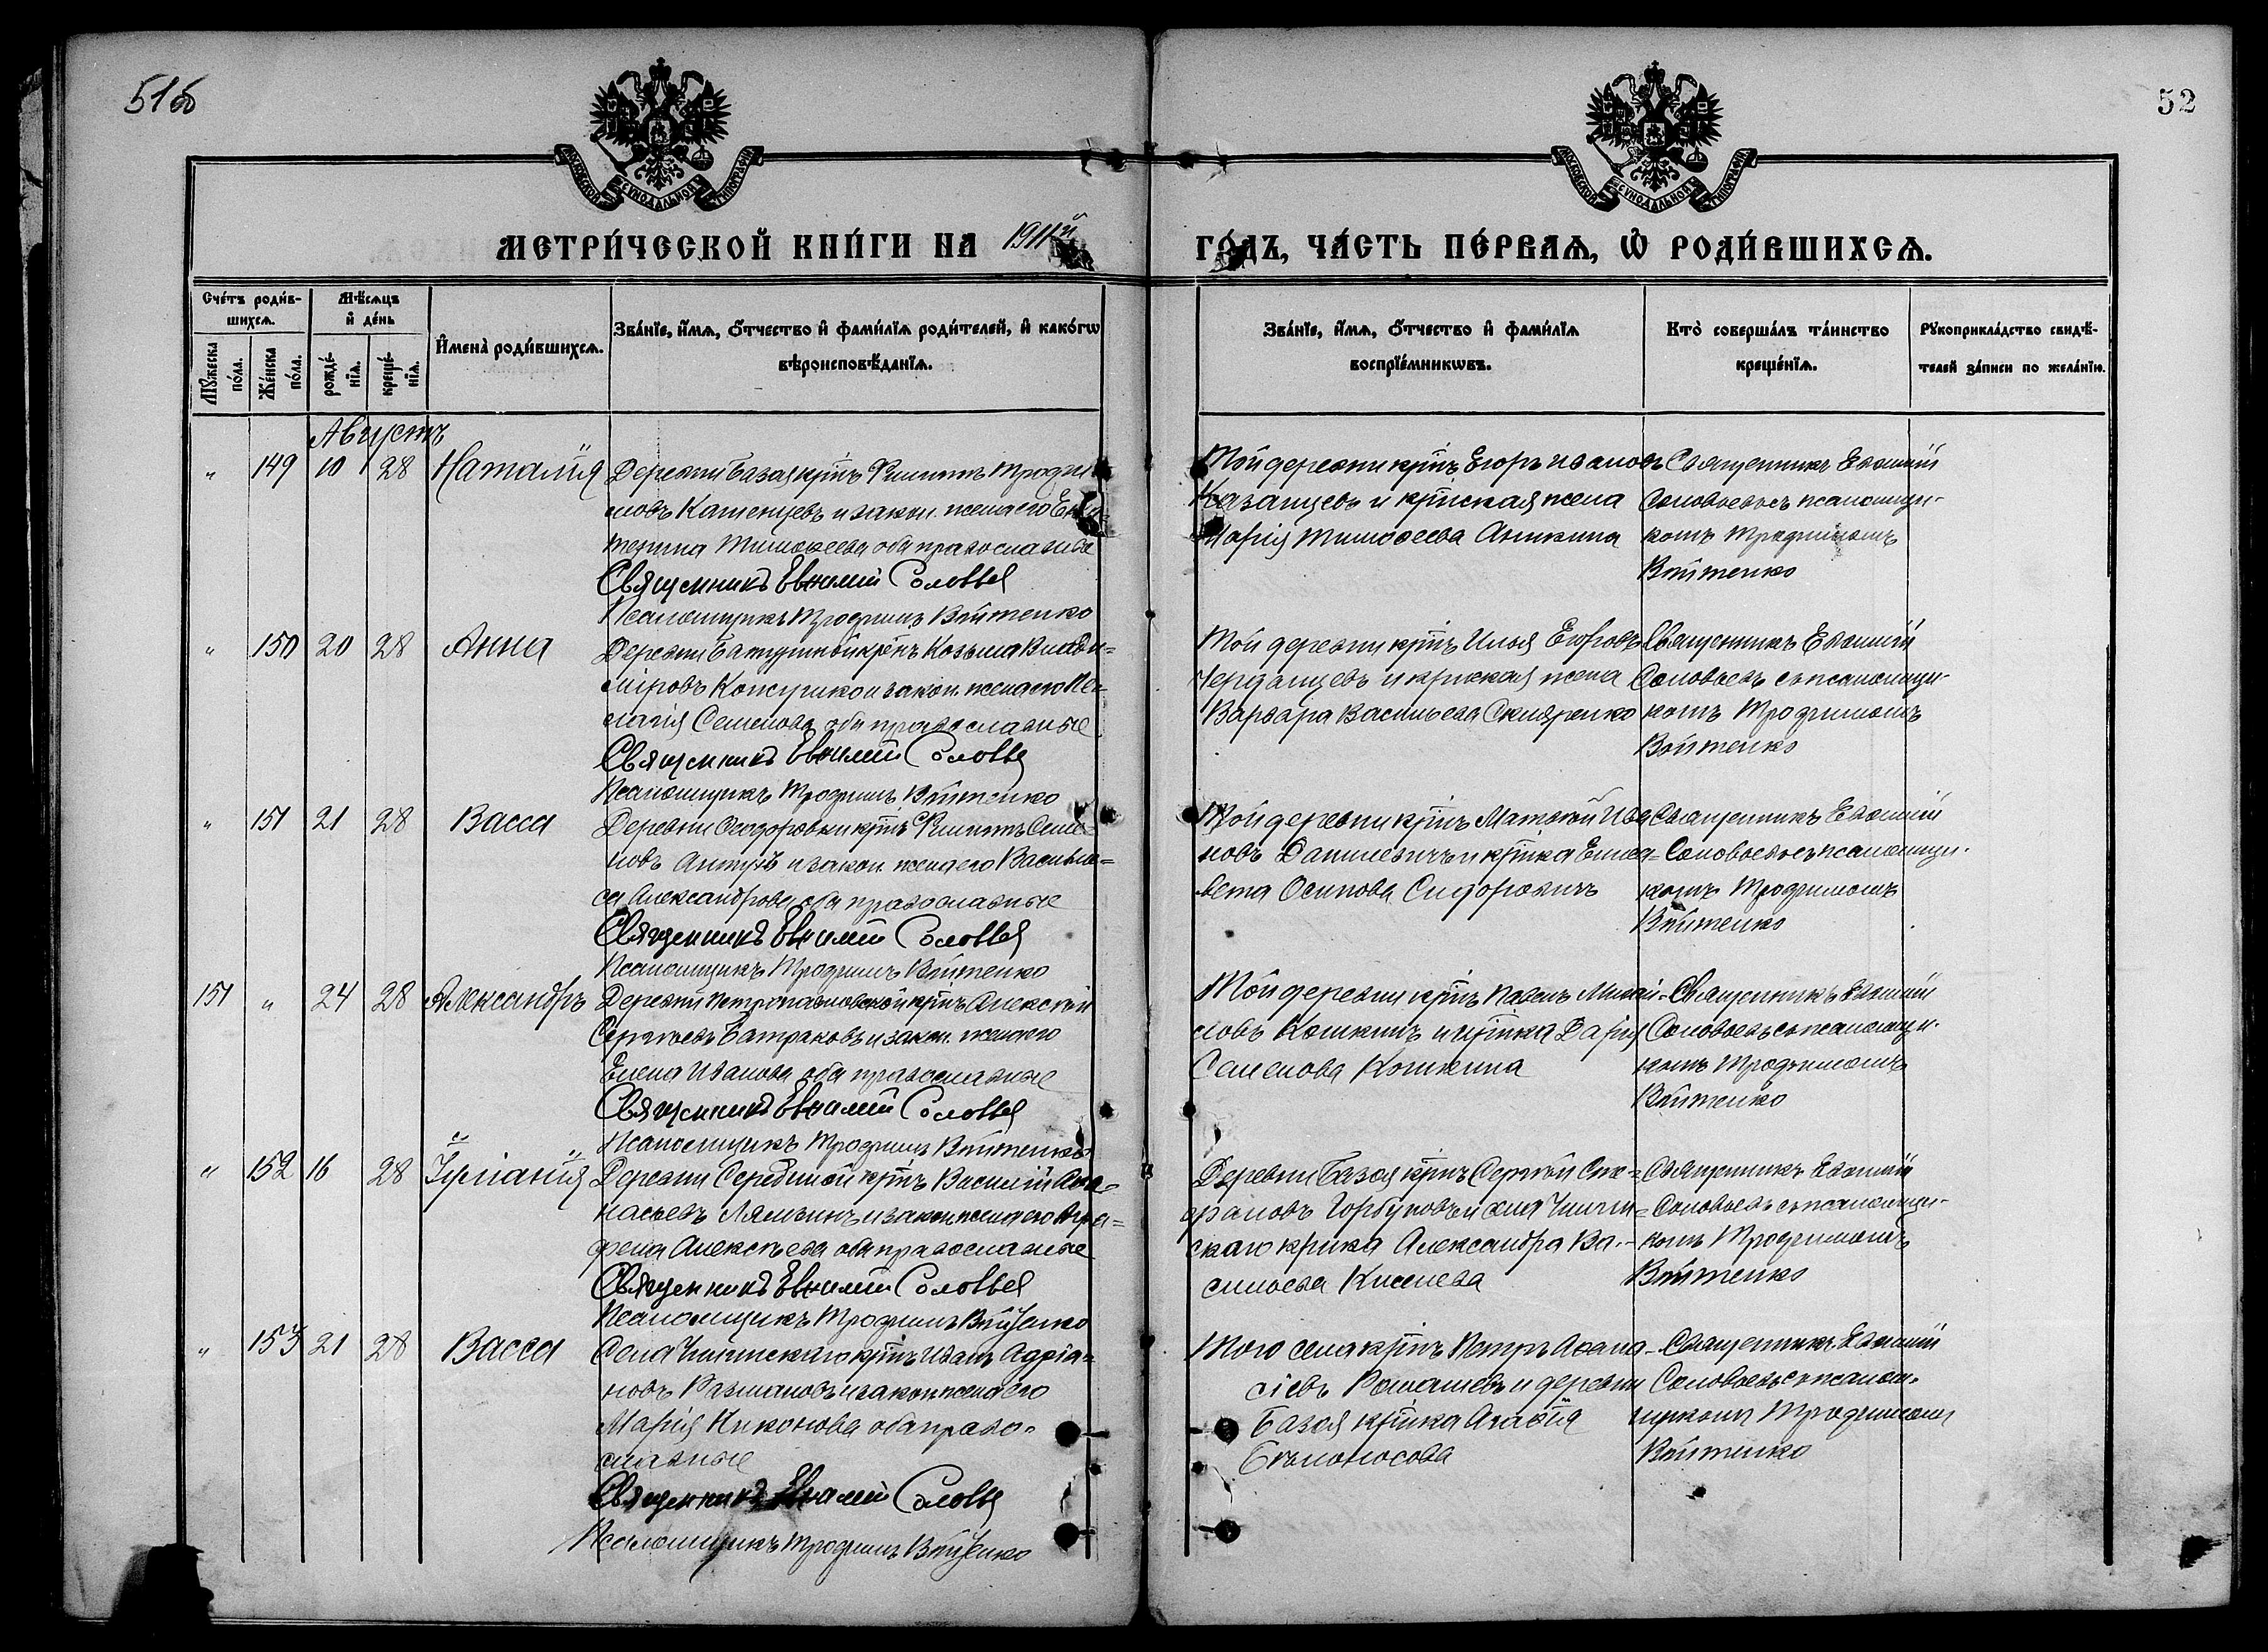 51об
52
МОСКОВСКОЙ СѴНОДАЛЬНОЙ ТИПОГРАФІИ
МОСКОВСКОЙ СѴНОДАЛЬНОЙ ТИПОГРАФІИ
МЕТРИ́ЧЕСКОЙ КНИ́ГИ НА 1911й ГО́ДЪ, ЧА́СТЬ ПЕ́РВАѦ, Ѡ҆ РОДИ́ВШИХСѦ.
Сче́тъ роди́в-
шихсѧ.
Мѣ́сѧцъ
и҆ де́нь
Мꙋ́жеска по́ла.
Же́нска по́ла.
рожде́-
нїѧ.
креще́-
нїѧ.
И҆мена̀ роди́вшихсѧ.
Зва́нїе, и҆́мѧ, ѻ҆́тчество и҆ фами́лїѧ роди́телей, и҆ како́гѡ
вѣроисповѣ́данїѧ.
Зва́нїе, и҆́мѧ, ѻ҆́тчество и҆ фами́лїѧ
воспрїе́мникѡвъ.
Кто̀ соверша́лъ та́инство
креще́нїѧ.
Рꙋкоприкла́дство свидѣ́-
телей за́писи по жела́нїю.
Августъ
" 149 10 28 Наталія
Деревни Базоя крт҃нъ Филиппъ Трофи
мовъ Каменцевъ и закон. жена его Ека-
терина Тимоѳеева оба православные
Священникъ Евѳимій Соловьев
Псаломщикъ Трофимъ Войтенко
Той деревни крт҃нъ Егоръ Ивановъ
Казанцевъ и крт҃нская жена
Марія Тимоѳеева Аникина
Священникъ Евѳимій
Соловьевъ съ псаломщи-
комъ Трофимомъ
Войтенко
" 150 20 28 Анна
Деревни крт҃нъ Козьма
и закон. жена его Пе-
лагія Семенова оба православные
Священникъ Евѳимій Соловьев
Псаломщикъ Трофимъ Войтенко
Той деревни крт҃нъ Илья Егоровъ
Черданцевъ и крт҃нская жена
Варвара Васильева Скляренко
Священникъ Евѳимій
Соловьевъ съ псаломщи-
комъ Трофимомъ
Войтенко
" 151 21 28 Васса
Деревни Ѳеодоровки крт҃нъ Филиппъ Семе-
новъ и закон. жена его Василис-
са Александрова оба православные
Священникъ Евѳимій Соловьев
Псаломщикъ Трофимъ Войтенко
Той деревни крт҃нъ Матвѣй Ива
новъ Данилевичъ и крт҃нка Елиса-
вета Осипова Сидоровичъ
Священникъ Евѳимій
Соловьевъ съ псаломщи-
комъ Трофимомъ
Войтенко
151 " 24 28 Александръ
Деревни Петропавловской крт҃нъ Алексѣй
Сергѣевъ Батраковъ и закон. жена его
Елена Иванова оба православные
Священникъ Евѳимій Соловьев
Псаломщикъ Трофимъ Войтенко
Той деревни крт҃нъ Павелъ Михай-
ловъ Кошкинъ и крт҃нка Дарія
Семенова Кошкина
Священникъ Евѳимій
Соловьевъ съ псаломщи-
комъ Трофимомъ
Войтенко
" 152 16 28 Іуліанія
Деревни крт҃нъ Василій Аѳа-
насьевъ Лямзинъ и закон. жена его Агра-
фена Алексѣева оба православные
Священникъ Евѳимій Соловьев
Псаломщикъ Трофимъ Войтенко
Деревни Базоя крт҃нъ Сергѣй
Горбуновъ и села Чилин-
скаго крт҃нка Александра Ва-
сильева Киселева
Священникъ Евѳимій
Соловьевъ съ псаломщи-
комъ Трофимомъ
Войтенко
" 153 21 28 Васса
Села Чилинскаго крт҃нъ Иванъ Адріа-
новъ и закон. жена его
Марія Никонова оба право-
славные
Священникъ Евѳимій Соловьев
Псаломщикъ Трофимъ Войтенко
Того села крт҃нъ Петръ Аѳана-
сіевъ Ромашевъ и деревни
Базоя крт҃нка Агафія
Бѣлоносова
Священникъ Евѳимій
Соловьевъ съ псалом-
щикомъ Трофимомъ
Войтенко